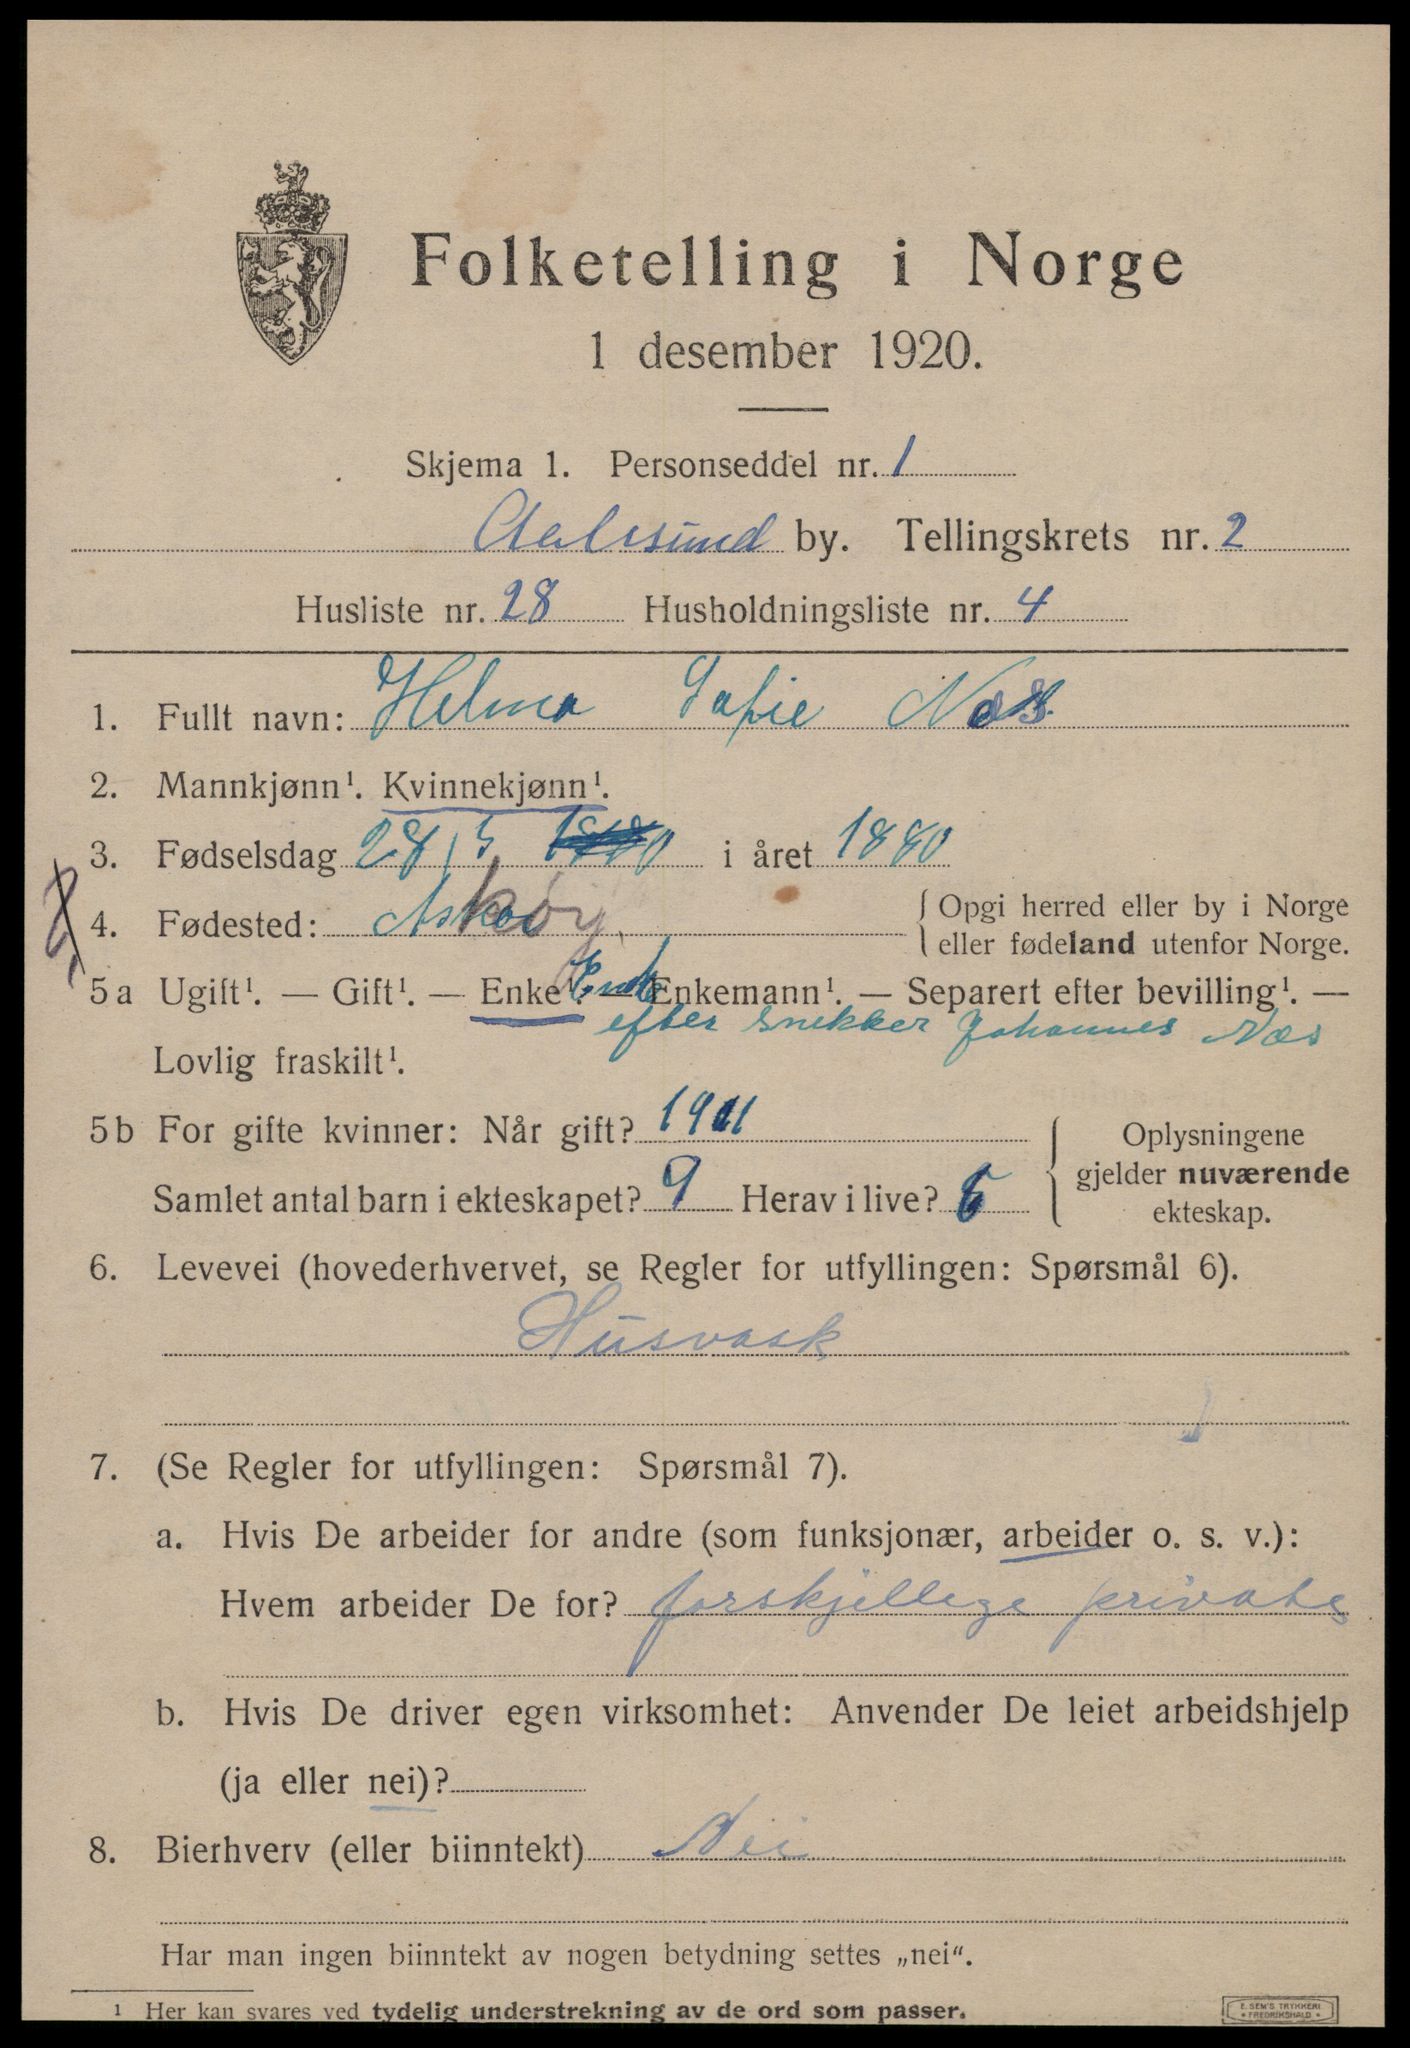 Folketelling i Norge
1 desember 1920.
Skjema 1. Personseddel nr. 1
Aalesund by. Tellingskrets nr. 2
Husliste nr. 28 Husholdningsliste nr. 4
1. Fullt navn: Helma Sofie Næs
2. Mannkjønn¹. Kvinnekjønn¹.
3. Fødselsdag 28/5 i året 1880
4. Fødested: Askøy { Opgi herred eller by i Norge
eller fødeland utenfor Norge.
5a Ugift¹. — Gift¹. — Enke¹. Enke — Enkemann¹. — Separert efter bevilling¹. —
efter snekker Johannes Næs
Lovlig fraskilt¹.
5b For gifte kvinner: Når gift? 1901 { Oplysningene
gjelder nuværende
ekteskap.
Samlet antal barn i ekteskapet? 9 Herav i live?
6. Levevei (hovederhvervet, se Regler for utfyllingen: Spørsmål 6).
Husvask
7. (Se Regler for utfyllingen: Spørsmål 7).
a. Hvis De arbeider for andre (som funksjonær, arbeider o. s. v.):
Hvem arbeider De for? forskjellege private
b. Hvis De driver egen virksomhet: Anvender De leiet arbeidshjelp
(ja eller nei)?
8. Bierhverv (eller biinntekt) Nei
Har man ingen biinntekt av nogen betydning settes „nei“.
¹ Her kan svares ved tydelig understrekning av de ord som passer.
E. SEM'S TRYKKERI
FREDRIKSHALD